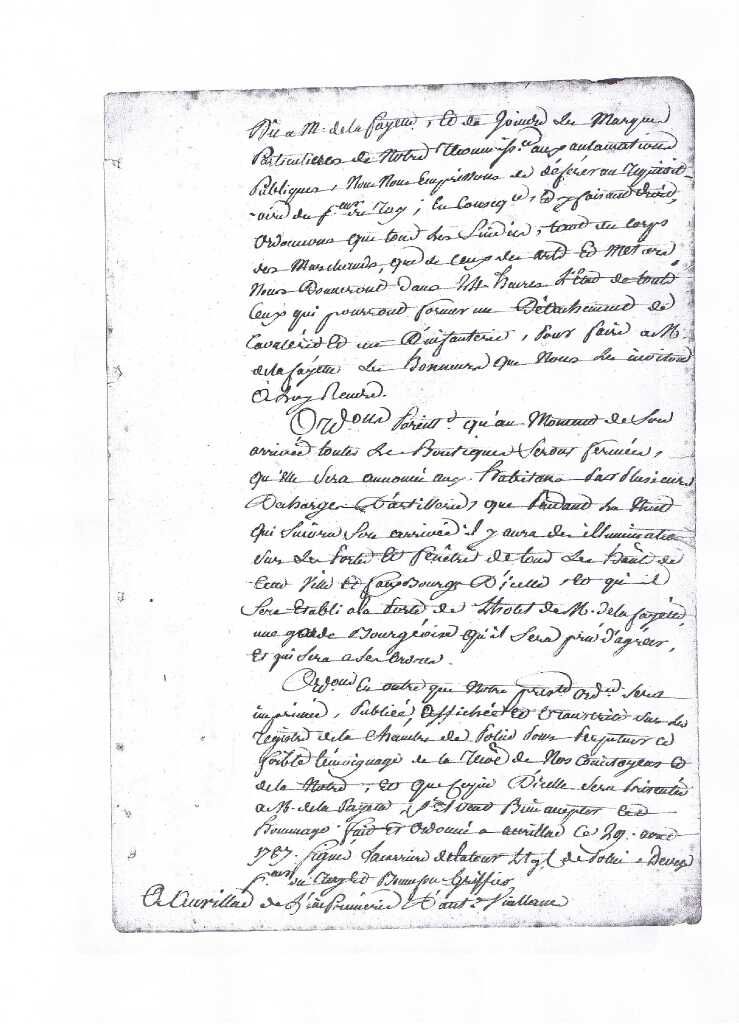 Dû a M. de la fayette, Et de Joindre Les Marques
Particulieres de Notre aux acclamations
Publiques, Nous Nous Empressons de déferer au requisit-
-oire du p.eur du Roy; En Conseq.ce, Et y faisant droit,
Ordonnons que tous Les Sindics, tant du Corps
des Marchands, que de Ceux des arts Et Metiers
Nous Donneront dans 24 heures L'Etat de touts
Ceux qui pourront former un Détachement de
Cavalerie Et un D'infanterie, pour faire a M.
de la fayette Les honneurs que Nous Les invitons
a Luy Rendre.
Ord.ons Pareillt. qu'au Moment de Son
arrivée toutes Les Boutiques Seront fermées,
qu'Elle Sera annoncée aux habitans Par Plusieurs
Decharges D'artillerie, que Pendant La Nuit
qui Suivra Son arrivée il y aura des illuminations
Sur Les Portes Et fenêtres de tous Les de
Cette Ville Et fauxBourgs D'icelle, Et qu'il
Sera Etabli a la Porte de L'hotel de M. de la fayette,
une garde Bourgeoise qu'il Sera prié d'agréer,
Et qui Sera a Ses Ordres.
Ord.ons En outre que Notre pres.te Ord.ce Sera
imprimée, Publiée, affichée Et Sur Les
registres de la Chambre de Police Pour Perpetuer ce
foible témoignage de la de Nos Concitoyens Et
de la Notre, Et que Copie D'icelle Sera Présentée
a M. de la Fayette, S'il veut Bien accepter Cet
hommage. fait Et Ordonné a aurillac Ce 29. avril
1787. Signé de Police
du Roy Et Greffier
A Aurillac de L'imprimerie D'ant.e Viallanes